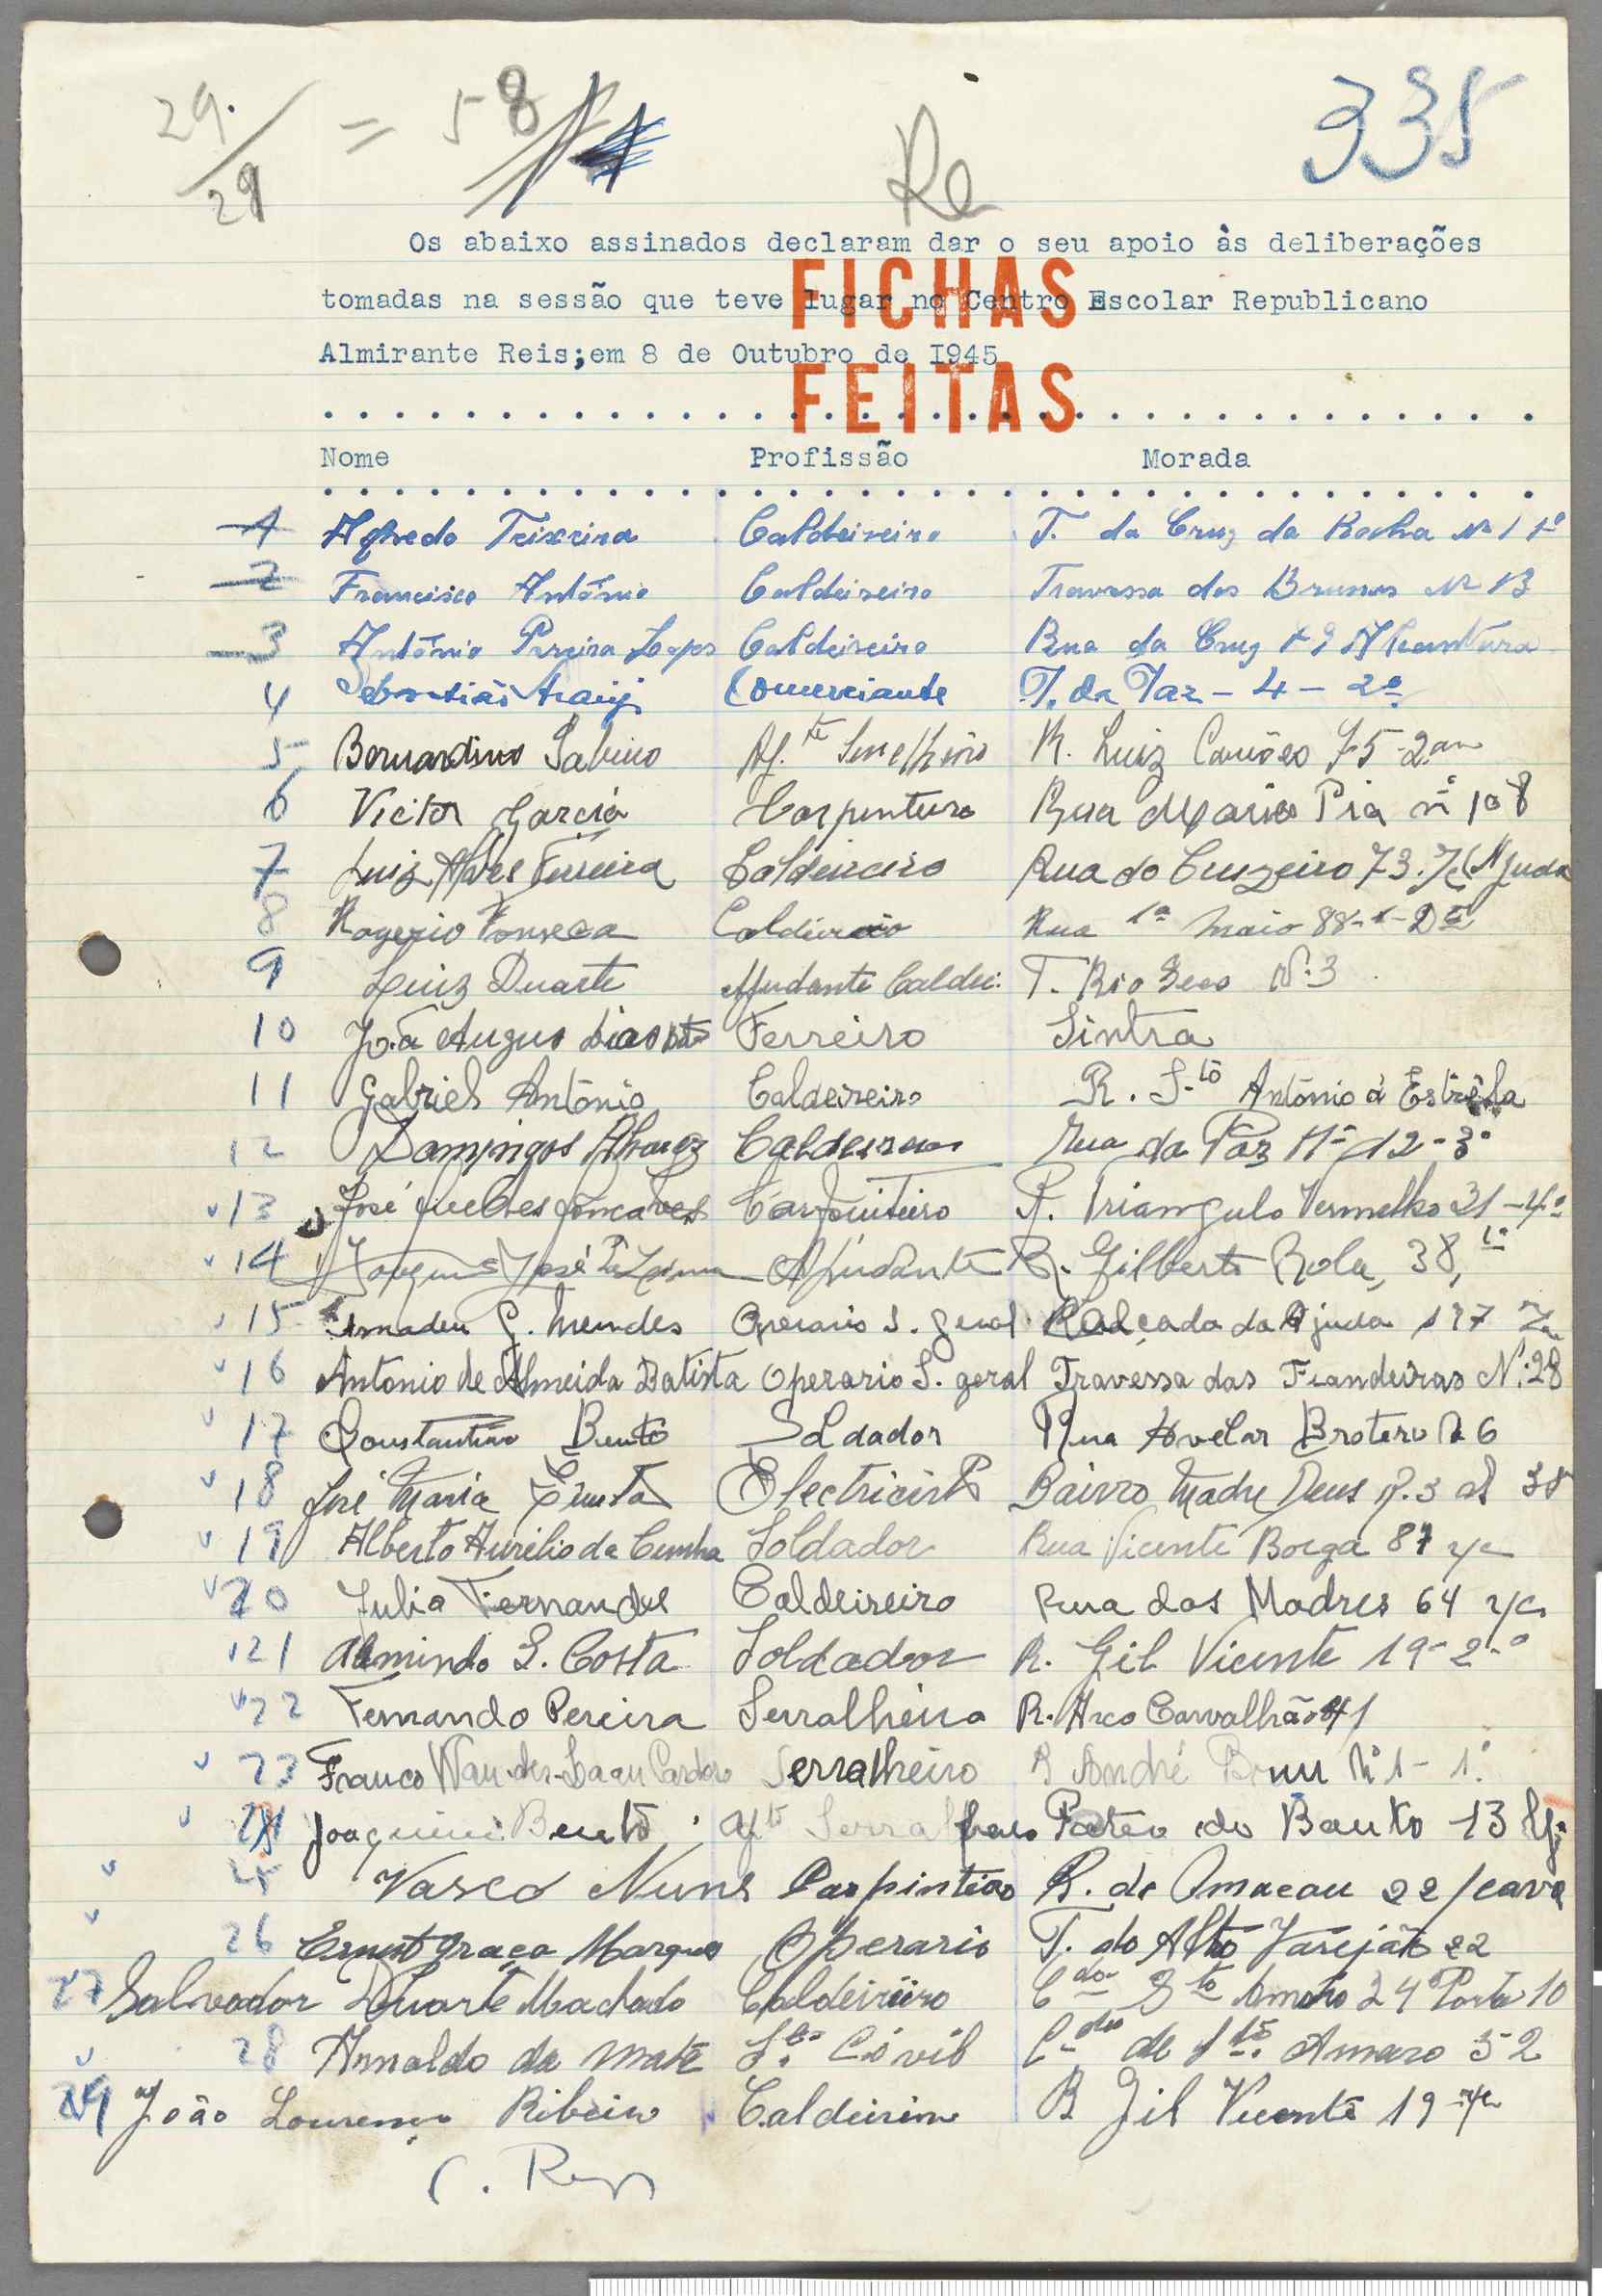 29.
29
= 58
335
Re
Os abaixo assinados declaram dar o seu apoio às deliberações
FICHAS
tomadas na sessão que teve lugar no Centro Escolar Republicano
Almirante Reis;em 8 de Outubro de I945
FEITAS
Nome Profissão Morada
1 Alfredo Teixeira Caldeireiro T. da Cruz da Rocha Nº 1 1º
2 Francisco António Caldeireiro Travessa dos Brunos Nº 13
3 António Pereira Lopes Caldeireiro Rua da Cruz Alcantura
4 Sebastião Araújo Comerciante T. da Paz - 4 - 2º
5 Bernardino Sabino Aj.te R. Luiz Camões 75-2º
6 Victor Garcia Carpinteiro Rua Maria Pia nº 108
7 Luiz Alves Ferreira Caldeireiro Rua do Cruzeiro 73. Ajuda
8 Rogerio Fonseca Caldeireiro Rua 1º Maio 88-1-Dto
9 Luiz Duarte Ajudante Caldei. T. Rio Seco Nº 3
10 João Augus Dias Ferreiro Sintra
11 Gabriel António Caldeireiro R. S.tº António á Estrêla
12 Domingos Alvarez Caldeireiro Rua da Paz Nº 12-3º
13 José Gonçalves Carpinteiro R. Triangulo Vermelho 31-4º
14 José Ajudante R. Gilberto Rola, 38, 1º
15 Amadeu G. Mendes Operario S. geral Calçada da Ajuda 197
16 Antonio de Almeida Batista Operario S. geral Travessa das Fiandeiras Nº 28
17 Constantino Bento Soldador Rua Avelar Brotero 6
18 José Maria Electricista Bairro Madre Deus R. 3 38
19 Alberto Aurélio da Cunha Soldador Rua Vicente Borga 87 r/c
20 Julio Fernandes Caldeireiro Rua das Madres 64 r/c
21 Almindo S. Costa Soldador R. Gil Vicente 19-2.º
22 Fernando Pereira Serralheiro R. Arco Carvalhão 41
23 Franco Serralheiro R André Nº 1 - 1º
24 Joaquim Bento Aj.te Serralheiro Pateo do Bauto 13
25 Vasco Nunes Carpinteiro R. de cave
26 Ernest Graça Marques Operario T. do Alto Varejão 22
27 Salvador Duarte Machado Caldeireiro C.da S.to Amaro 24 Porta 10
28 Arnaldo da Civil C.da de S.to Amaro 52
29 João Lourenço Ribeiro Caldeireiro R Gil Vicente 19 r/c